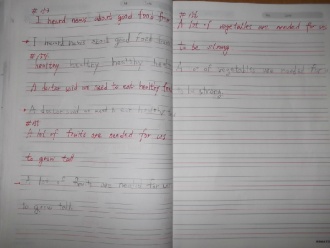 I heard news about good food from
I heard news about good food
healthy healthy healthy
A doctor said we need to eat healthy
A doctor said we need to eat healthy
A lot of fruits are needed for us
to grow tall
A lot of fruits are needed for us
to grow tall.
A lot of vegetables are needed for us
to be strong
A lot of vegetables are needed for
to be strong.